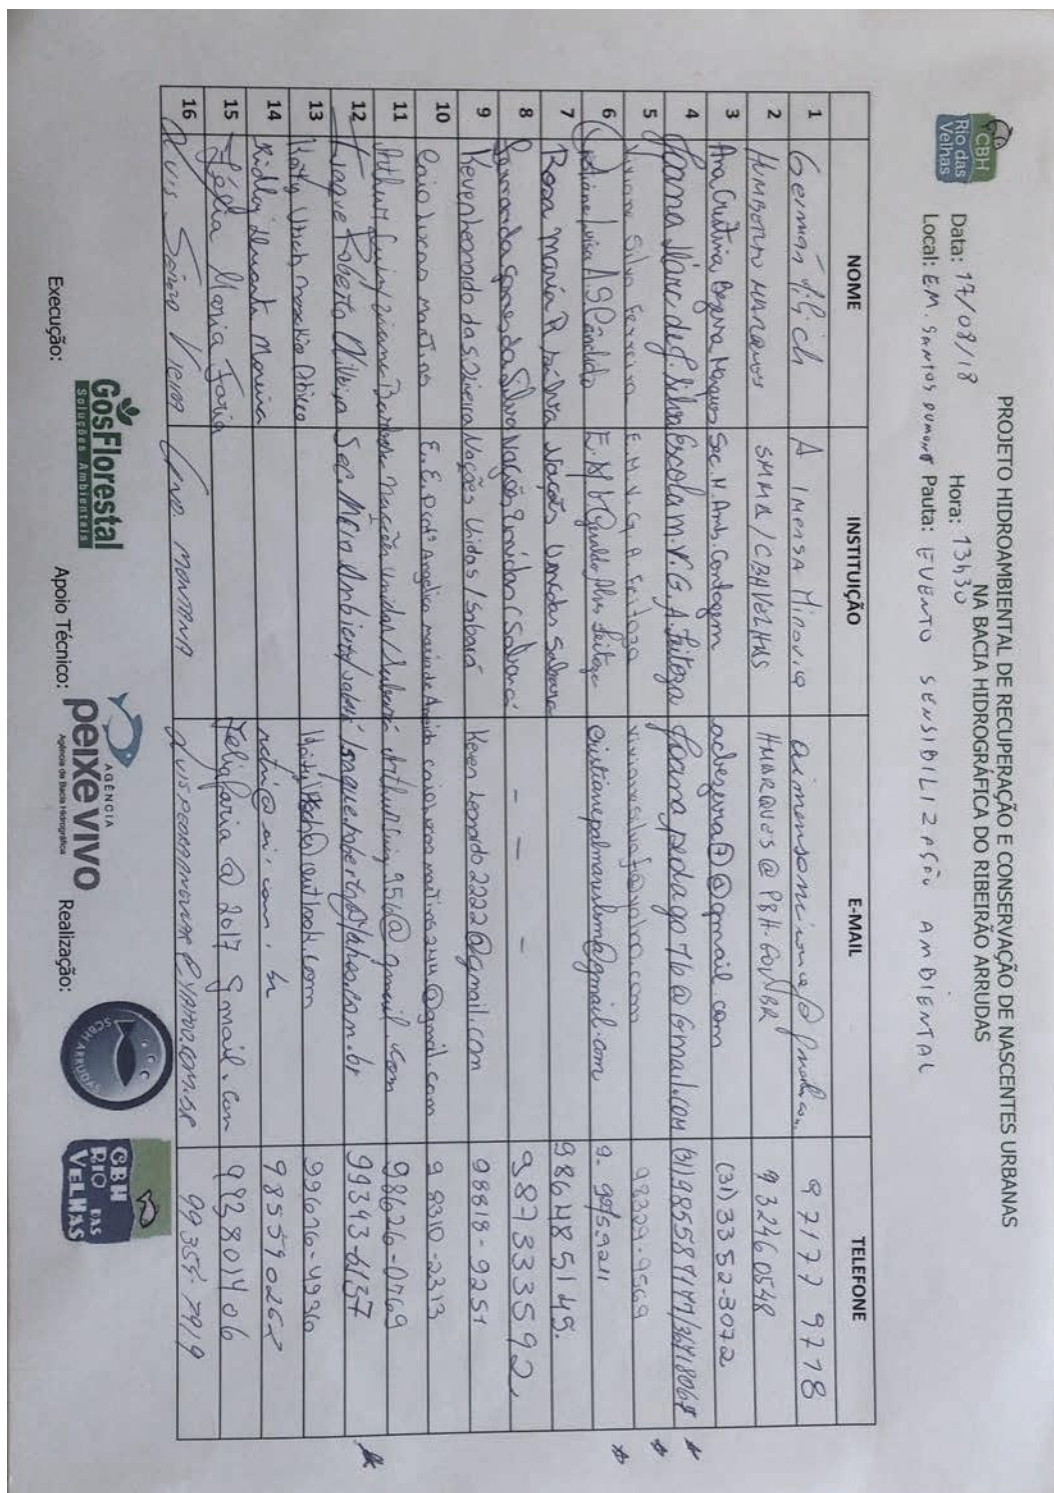 CBH
Rio das
Velhas
PROJETO HIDROAMBIENTAL DE RECUPERAÇÃO E CONSERVAÇÃO DE NASCENTES URBANAS
NA BACIA HIDROGRÁFICA DO RIBEIRÃO ARRUDAS
Data: 17/08/18 Hora: 13h30
Local: EM. SANTOS DUMONT Pauta: EVENTO SENSIBILIZAÇÃO AMBIENTAL
NOME INSTITUIÇÃO E-MAIL TELEFONE
1 Germán A IMENSA MINORIA 97177 9718
2 HUMBERTO MARQUES SMMA/CBHVELHAS HMARQUES@PBH.GOV.BR 93246 0548
3 Ana Cristina Bezerra Marques Sec. M. Amb. Contagem acbezerra7@gmail.com (31) 3352-3072
4 Joana D'arc de F. Silva Escola M.V.G.A. Feitoza Joanapedago76@Gmail.com
5 Viviane Silva Ferreira E.M.V.G.A. Feitoza 98329-9569
6 Cristiane Luisa A S Cândido E.M.V Geraldo Alves Feitoza
7 Rosa Maria R Nações Unidas Sabará 986485149.
8 da Silva Nações Unidas (Sabará) - - - 987333592
9 Keven Leonardo das S. Nações Unidas/Sabará Keven Leonardo2222@gmail.com 98818-9251
10 Caio Lucas Martins E.E. Profª Angélica Maria de caiolucasmartins244@gmail.com 9 8310-2313
11 Arthur Luiz Nações Unidas/Sabará Arthurluiz956@gmail.com 98626-0769
12 Roberto Sec. Meio Ambiente/Sabará 99343-6137
13 @outlook.com 99676-4936
14 Ridley Duarte Moreira 985590262
15 Zélia Maria Faria Zeliafaria@2017gmail.com 993801406
16 Luis MONTANA 99354-7919
Execução:
GosFlorestal
Soluções Ambientais
Apoio Técnico:
AGÊNCIA
peixe vivo
Agência de Bacia Hidrográfica
Realização:
SCBH ARRUDAS
CBH
RIO DAS
VELHAS